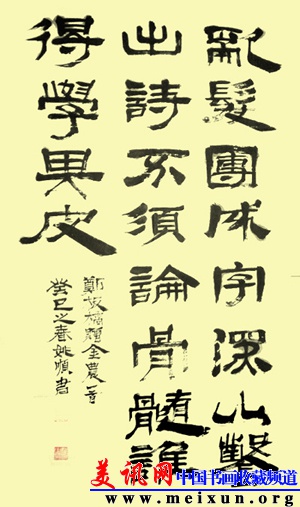 亂髮團成字深山鑿
出詩不須論骨髓誰
得學其皮
鄭板橋題金農
癸巳之春姚書
美讯网
中国书画收藏频道
www.meixun.org